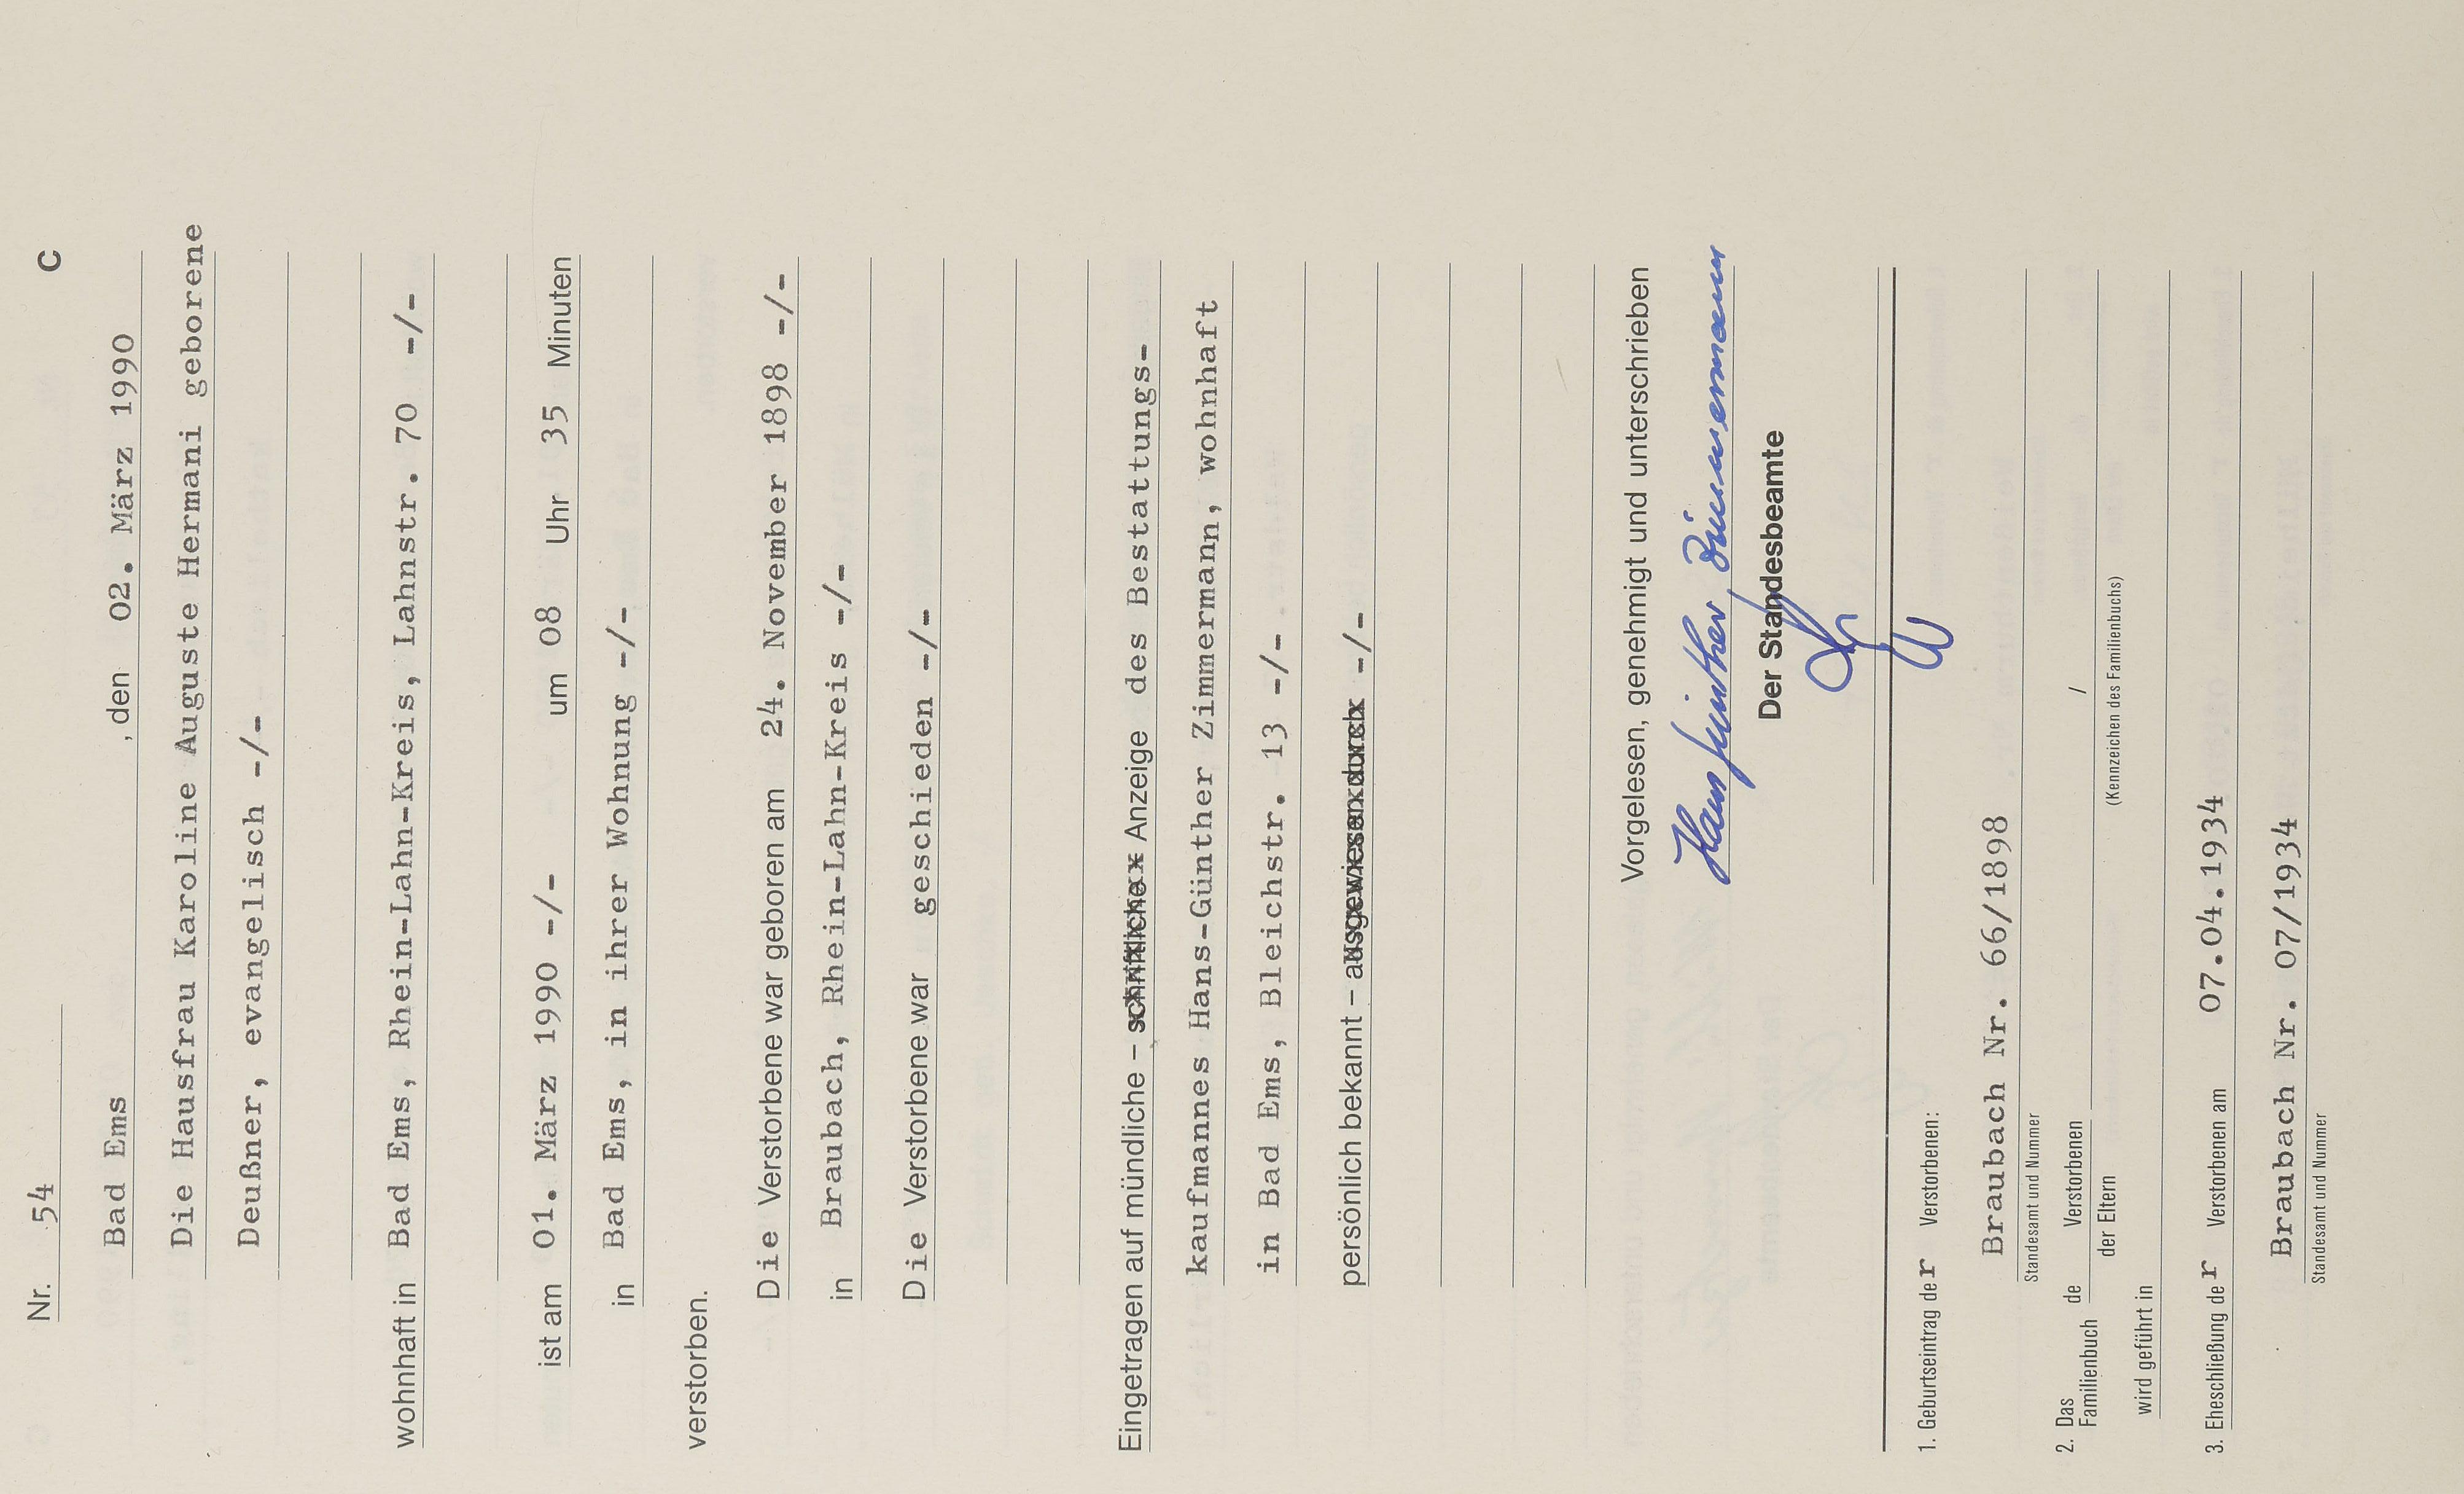 Nr. 54 C
Bad Ems , den 02. März 1990
Die Hausfrau Karoline Auguste Hermani geborene
Deußner, evangelisch -/-
wohnhaft in Bad Ems, Rhein-Lahn-Kreis, Lahnstr. 70 -/-
ist am 01. März 1990 -/- um 08 Uhr 35 Minuten
in Bad Ems, in ihrer Wohnung -/-
verstorben.
Die Verstorbene war geboren am 24. November 1898 -/-
in Braubach, Rhein-Lahn-Kreis -/-
Die Verstorbene war geschieden -/-
Eingetragen auf mündliche – schriftliche Anzeige des Bestattungs-
kaufmannes Hans-Günther Zimmermann, wohnhaft
in Bad Ems, Bleichstr. 13 -/-
persönlich bekannt – ausgewiesen durch -/-
Vorgelesen, genehmigt und unterschrieben
Hans Günther Zimmermann
Der Standesbeamte
1. Geburtseintrag der Verstorbenen:
Braubach Nr. 66/1898
Standesamt und Nummer
2. Das Familienbuch de Verstorbenen /
der Eltern (Kennzeichen des Familienbuchs)
wird geführt in
3. Eheschließung der Verstorbenen am 07.04.1934
Braubach Nr. 07/1934
Standesamt und Nummer